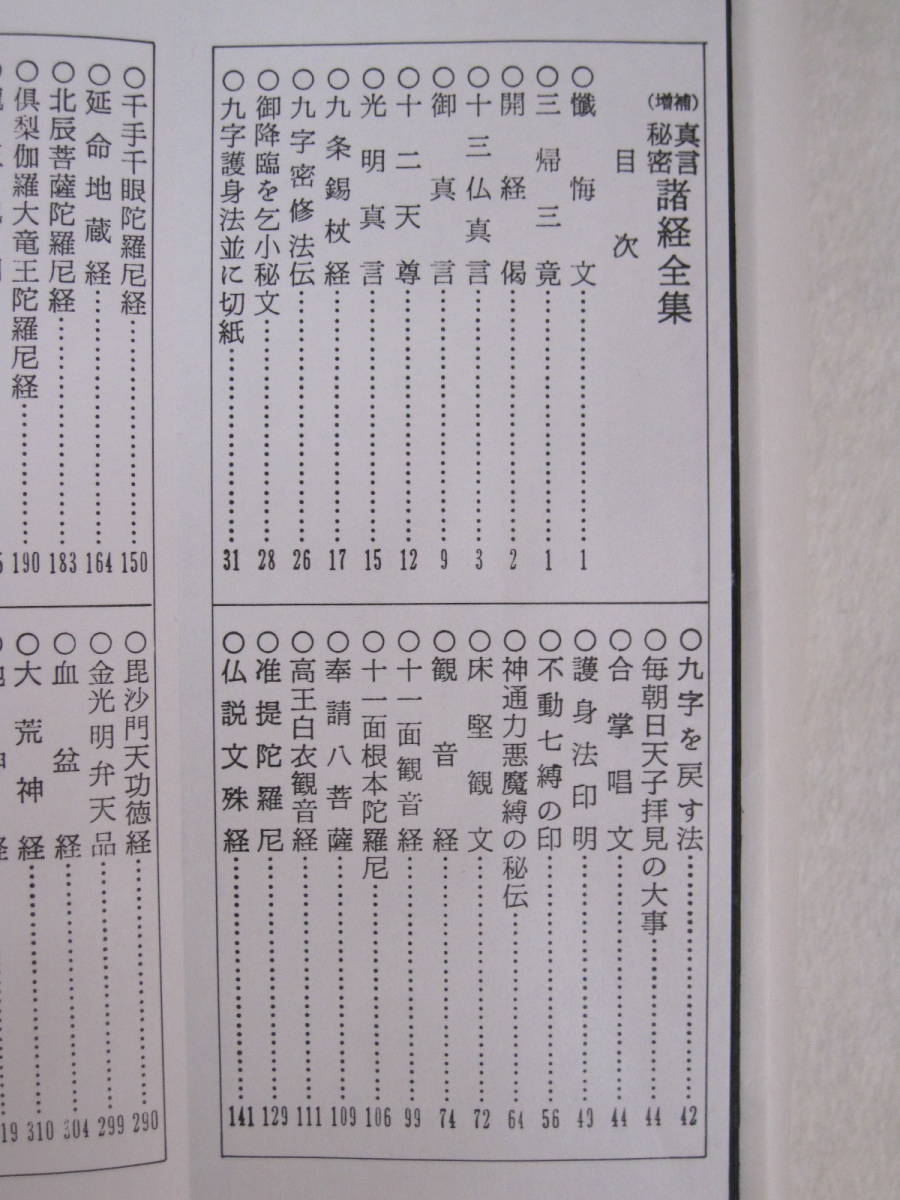 (増補)真言秘密 諸経全集
目次
○懺悔文……1
○三帰三竟……1
○開経偈……2
○十三仏真言……3
○御真言……9
○十二天尊……12
○光明真言……15
○九条錫杖経……17
○九字密修法伝……26
○御降臨を乞小秘文……28
○九字護身法並に切紙……31
○九字を戻す法……42
○毎朝日天子拝見の大事……44
○合掌唱文……44
○護身法印明……49
○不動七縛の印……56
○神通力悪魔縛の秘伝……64
○床堅観文……72
○観音経……74
○十一面観音経……99
○十一面根本陀羅尼……106
○奉請八菩薩……109
○高王白衣観音経……111
○准提陀羅尼……129
○仏説文殊経……141
○千手千眼陀羅尼経……150
○延命地蔵経……164
○北辰菩薩陀羅尼経……183
○倶梨伽羅大竜王陀羅尼経……190
○毘沙門天功徳経……290
○金光明弁天品……299
○血盆経……304
○大荒神経……310